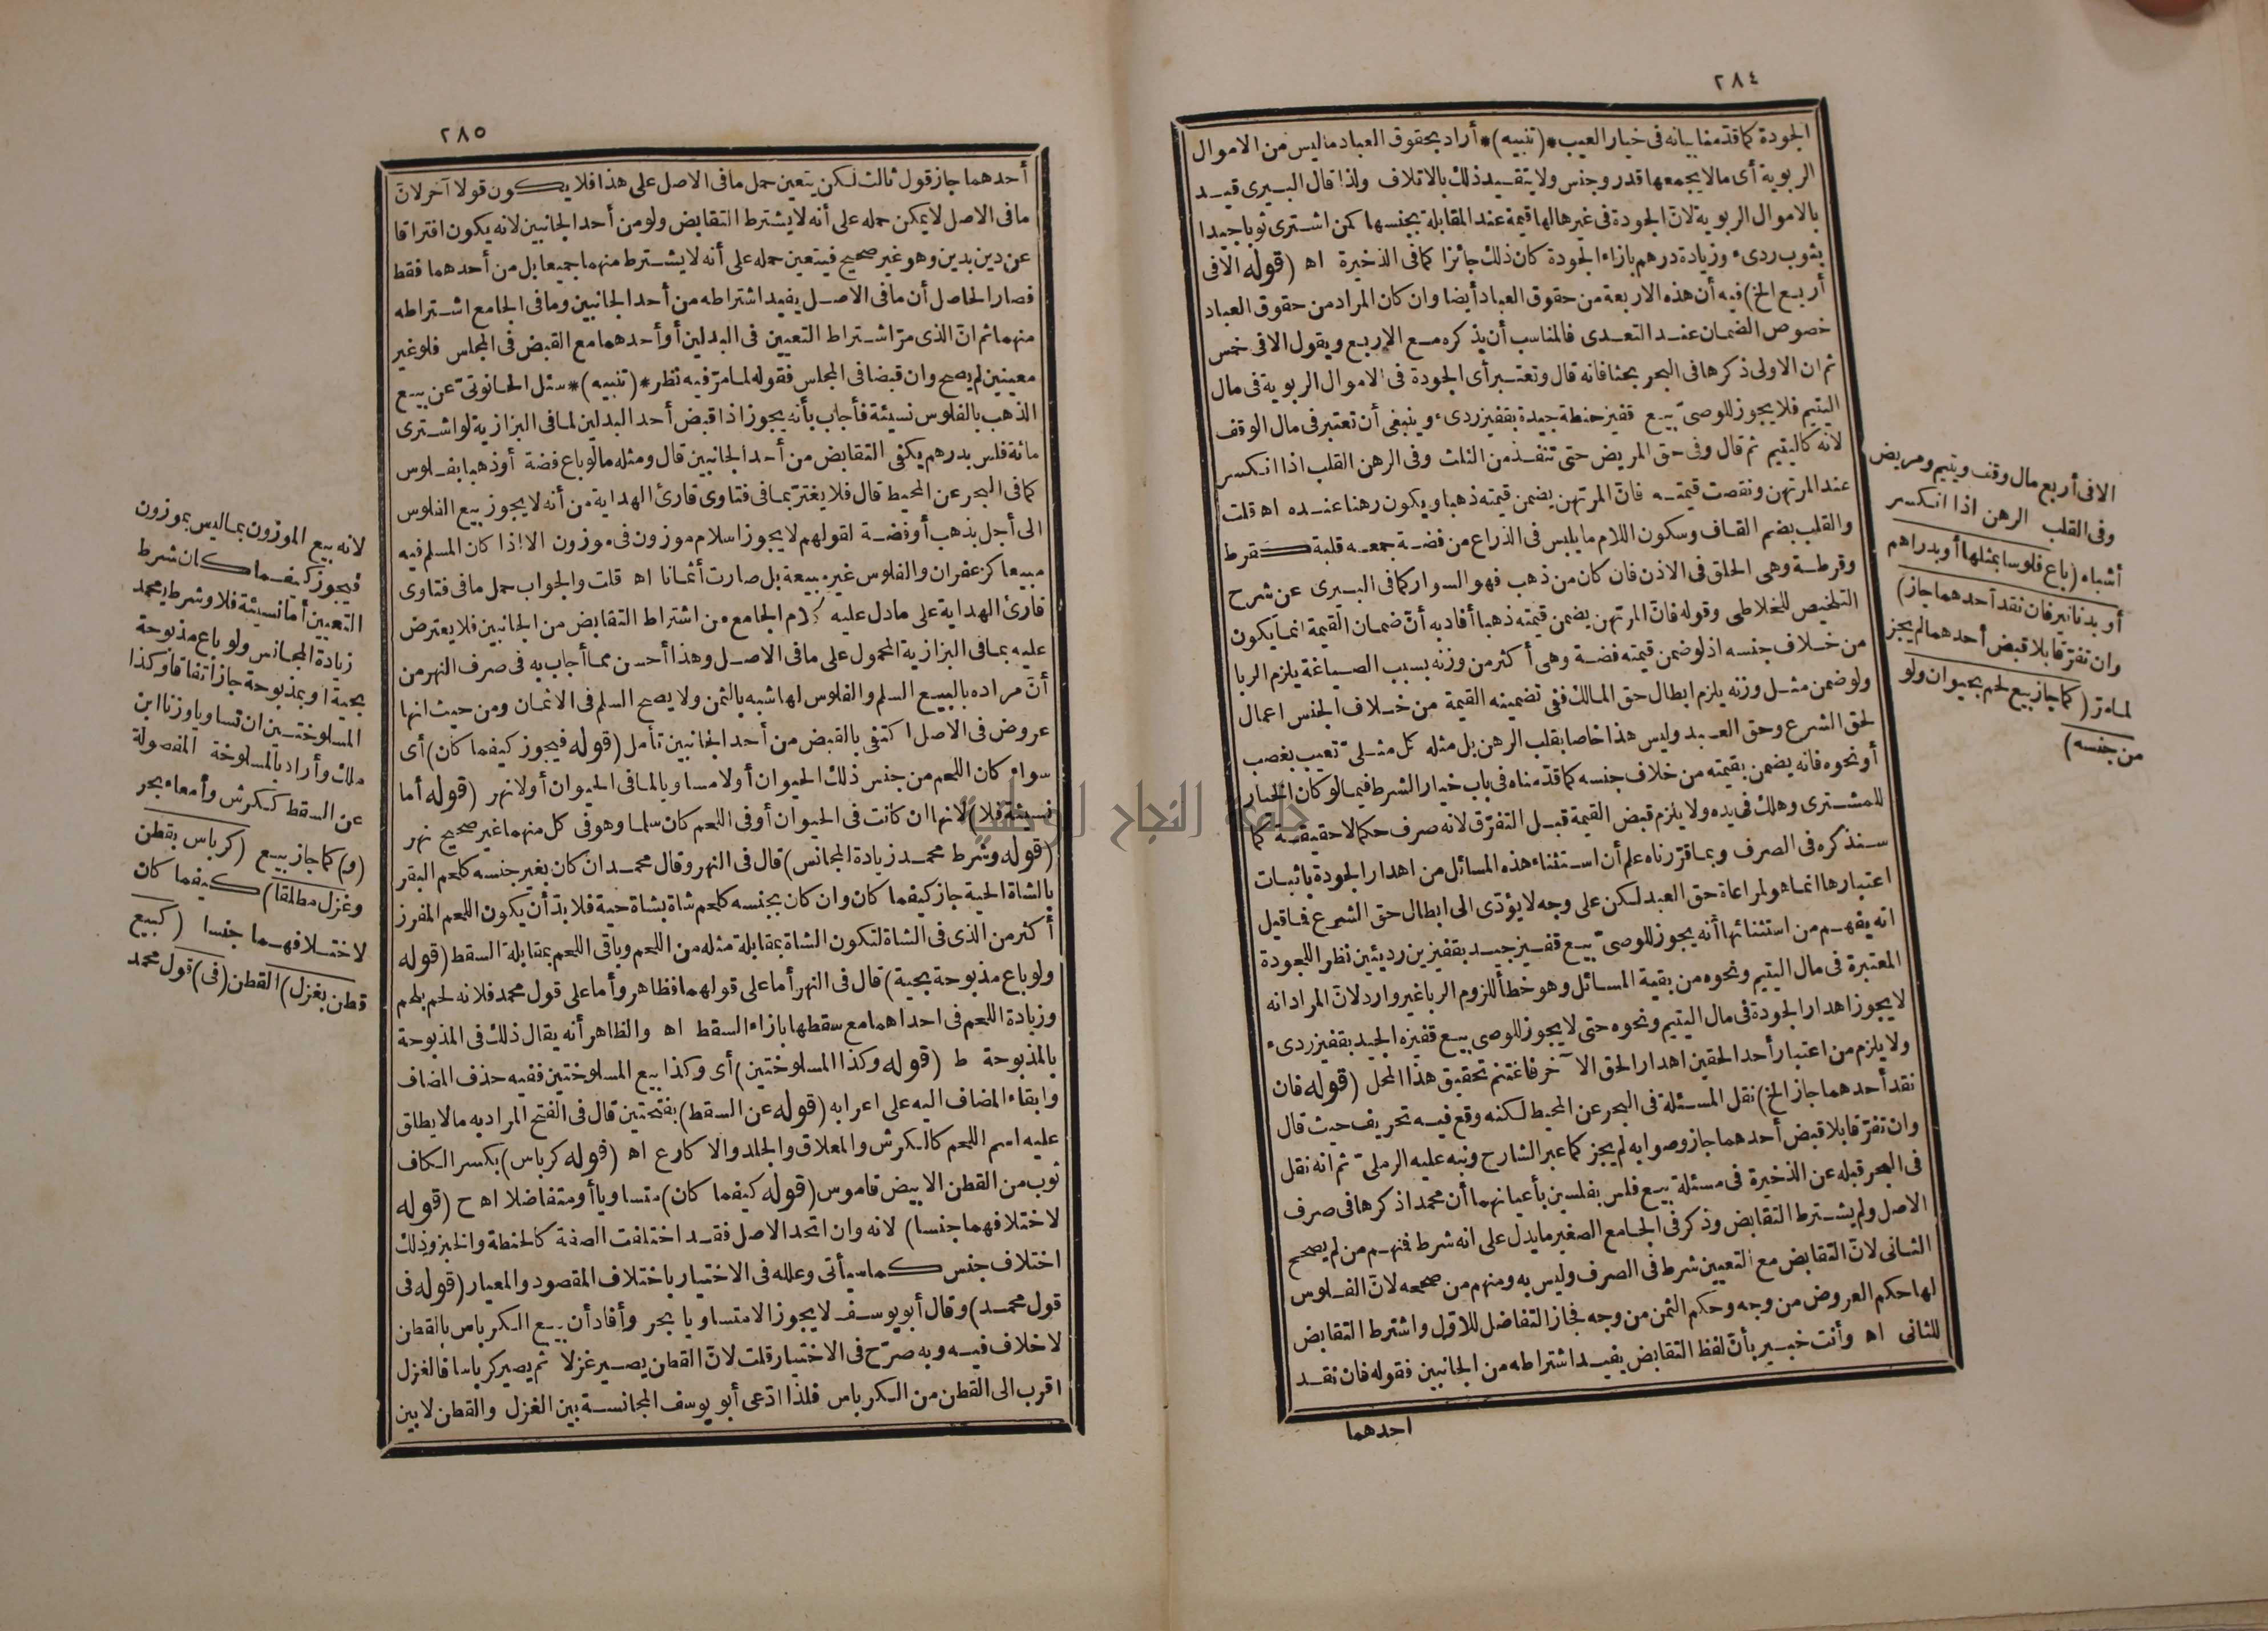 ٢٨٤
الجودة كما قدّمنا بيانه فى خيار العيب * (تنبيه) * أراد بحقوق العباد ما ليس من الاموال
الربوية أى مالا يجمعها قدر وجنس ولا يتقيد ذلك بالاتلاف ولذا قال البيرى قيد
بالاموال الربوية لانّ الجودة فى غيرها لها قيمة عند المقابلة بجنسها كمن اشترى ثوبا جيدا
بثوب ردىء وزيادة درهم بازاء الجودة كان ذلك جائزا كما فى الذخيرة اه (قوله الا فى
أربع الخ) فيه أن هذه الاربعة من حقوق العباد أيضا وان كان المراد من حقوق العباد
خصوص الضمان عند التعدى فالمناسب أن يذكره مع الاربع ويقول الا فى خمس
ثم ان الاولى ذكرها فى البحر بحثا فانه قال وتعتبر أى الجودة فى الاموال الربوية فى مال
اليتيم فلا يجوز للوصىّ بيع قفيز حنطة جيدة بقفيز ردىء وينبغى أن تعتبر فى مال الوقف
لانه كاليتيم ثم قال وفى حق المريض حتى تنفذ من الثلث وفى الرهن القلب اذا انكسر
عند المرتهن ونقصت قيمته فانّ المرتهن يضمن قيمته ذهبا ويكون رهنا عنده اه قلت
والقلب بضم القاف وسكون اللام ما يلبس فى الذراع من فضة جمعه قلبة كقرط
وقرطة وهى الحلق فى الاذن فان كان من ذهب فهو السوار كما فى البيرى عن شرح
التلخيص للخلاطى وقوله فانّ المرتهن يضمن قيمته ذهبا أفاد به أنّ ضمان القيمة انما يكون
من خلاف جنسه اذ لو ضمن قيمته فضة وهى أكثر من وزنه بسبب الصياغة يلزم الربا
ولو ضمن مثل وزنه يلزم ابطال حق المالك ففى تضمينه القيمة من خلاف الجنس اعمال
لحق الشرع وحق العبد وليس هذا خاصا بقلب الرهن بل مثله كل مثلىّ تعيب بغصب
أو نحوه فانه يضمن بقيمته من خلاف جنسه كما قدّمناه فى باب خيار الشرط فيما لو كان الخيار
للمشترى وهلك فى يده ولا يلزم قبض القيمة قبل التفرّق لانه صرف حكما لا حقيقة كما
سنذكره فى الصرف وبما قرّرناه علم أن استثناء هذه المسائل من اهدار الجودة باثبات
اعتبارها انما هو لمراعاة حق العبد لكن على وجه لا يؤدّى الى ابطال حق الشرع فما قيل
انه يفهم من استثنائها أنه يجوز للوصىّ بيع قفيز جيد بقفيزين رديئين نظر اللجودة
المعتبرة فى مال اليتيم ونحوه من بقية المسائل وهو خطأ للزوم الربا غير وارد لانّ المراد انه
لا يجوز اهدار الجودة فى مال اليتيم ونحوه حتى لا يجوز للوصى بيع قفيزه الجيد بقفيز ردىء
ولا يلزم من اعتبار أحد الحقين اهدار الحق الآخر فاغتنم تحقيق هذا المحل (قوله فان
نقد أحدهما جاز الخ) نقل المسئلة فى البحر عن المحيط لكنه وقع فيه تحريف حيث قال
وان تفرّقا بلا قبض أحدهما جاز وصوابه لم يجز كما عبر الشارح ونبه عليه الرملىّ ثم انه نقل
فى البحر قبله عن الذخيرة فى مسئلة بيع فلس بفلسين بأعيانهما أن محمدا ذكرها فى صرف
الاصل ولم يشترط التقابض وذكر فى الجامع الصغير ما يدل على انه شرط فمنهم من لم يصحح
الثانى لانّ التقابض مع التعيين شرط فى الصرف وليس به ومنهم من صححه لانّ الفلوس
لها حكم العروض من وجه وحكم الثمن من وجه فجاز التفاضل للاوّل واشترط التقابض
للثانى اه وأنت خبير بأنّ لفظ التقابض يفيد اشتراطه من الجانبين فقوله فان نقد
احدهما
الا فى أربع مال وقف ويتيم ومريض
وفى القلب الرهن اذا انكسر
أشباه (باع فلوسا بمثلها أو بدراهم
أو بدنانير فان نقد أحدهما جاز)
وان تفرّقا بلا قبض أحدهما لم يجز
لما مرّ (كما جاز بيع لحم بحيوان ولو
من جنسه)
٢٨٥
أحدهما جاز قول ثالث لكن يتعين حمل ما فى الاصل على هذا فلا يكون قولا آخر لانّ
ما فى الاصل لا يمكن حمله على أنه لا يشترط التقابض ولو من أحد الجانبين لانه يكون افتراقا
عن دين بدين وهو غير صحيح فيتعين حمله على أنه لا يشترط منهما جميعا بل من أحدهما فقط
فصار الحاصل أن ما فى الاصل يفيد اشتراطه من أحد الجانبين وما فى الجامع اشتراطه
منهما ثم انّ الذى مرّ اشتراط التعيين فى البدلين أو أحدهما مع القبض فى المجلس فلو غير
معينين لم يصح وان قبضا فى المجلس فقوله لما مرّ فيه نظر * (تنبيه) * سئل الحانوتىّ عن بيع
الذهب بالفلوس نسيئة فأجاب بأنه يجوز اذا قبض أحد البدلين لما فى البزازية لو اشترى
مائة فلس بدرهم يكفى التقابض من أحد الجانبين قال ومثله ما لو باع فضة أو ذهبا بفلوس
كما فى البحر عن المحيط قال فلا يغترّ بما فى فتاوى قارئ الهداية من أنه لا يجوز بيع الفلوس
الى أجل بذهب أو فضة لقولهم لا يجوز اسلام موزون فى موزون الا اذا كان المسلم فيه
مبيعا كزعفران والفلوس غير مبيعة بل صارت أثمانا اه قلت والجواب حمل ما فى فتاوى
قارئ الهداية على ما دل عليه كلام الجامع من اشتراط التقابض من الجانبين فلا يعترض
عليه بما فى البزازية المحمول على ما فى الاصل وهذا أحسن مما أجاب به فى صرف النهر من
أنّ مراده بالبيع السلم والفلوس لها شبه بالثمن ولا يصح السلم فى الاثمان ومن حيث انها
عروض فى الاصل اكتفى بالقبض من أحد الجانبين تأمل (قوله فيجوز كيفما كان) أى
سواء كان اللحم من جنس ذلك الحيوان أولا مساويا لما فى الحيوان أولا نهر (قوله أما
نسيئة فلا) لانها ان كانت فى الحيوان أو فى اللحم كان سلما وهو فى كل منهما غير صحيح نهر
(قوله وشرط محمد زيادة المجانس) قال فى النهر وقال محمد ان كان بغير جنسه كلحم البقر
بالشاة الحية جاز كيفما كان وان كان بجنسه كلحم شاة بشاة حية فلا بدّ أن يكون اللحم المفرز
أكثر من الذى فى الشاة لتكون الشاة بمقابلة مثله من اللحم وباقى اللحم بمقابلة السقط (قوله
ولو باع مذبوحة بحية) قال فى النهر أما على قولهما فظاهر وأما على قول محمد فلانه لحم بلحم
وزيادة اللحم فى احداهما مع سقطها بازاء السقط اه والظاهر أنه يقال ذلك فى المذبوحة
بالمذبوحة ط (قوله وكذا المسلوختين) أى وكذا بيع المسلوختين ففيه حذف المضاف
وابقاء المضاف اليه على اعرابه (قوله عن السقط) بفتحتين قال فى الفتح المراد به ما لا يطلق
عليه اسم اللحم كالكرش والمعلاق والجلد والاكارع اه (قوله كرباس) بكسر الكاف
ثوب من القطن الابيض قاموس (قوله كيفما كان) متساويا أو متفاضلا اه ح (قوله
لاختلافهما جنسا) لانه وان اتحد الاصل فقد اختلفت الصفة كالحنطة والخبز وذلك
اختلاف جنس كما سيأتى وعلله فى الاختيار باختلاف المقصود والمعيار (قوله فى
قول محمد) وقال أبو يوسف لا يجوز الا متساويا بحر وأفاد أن بيع الكرباس بالقطن
لا خلاف فيه وبه صرّح فى الاختيار قلت لانّ القطن يصير غزلا ثم يصير كرباسا فالغزل
اقرب الى القطن من الكرباس فلذا ادّعى أبو يوسف المجانسة بين الغزل والقطن لا بين
لانه بيع الموزون بما ليس بموزون
فيجوز كيفما كان شرط
التعيين أما نسيئة فلا وشرط محمد
زيادة المجانس ولو باع مذبوحة
بحية أو بمذبوحة جاز اتفاقا وكذا
المسلوختين ان تساويا وزنا ابن
ملك وأراد بالمسلوخة المفصولة
عن السقط ككرش وأمعاء بحر
(و) كما جاز بيع (كرباس بقطن
وغزل مطلقا) كيفما كان
لاختلافهما جنسا (كبيع
قطن بغزل) القطن (فى) قول محمد
جامعة النجاح